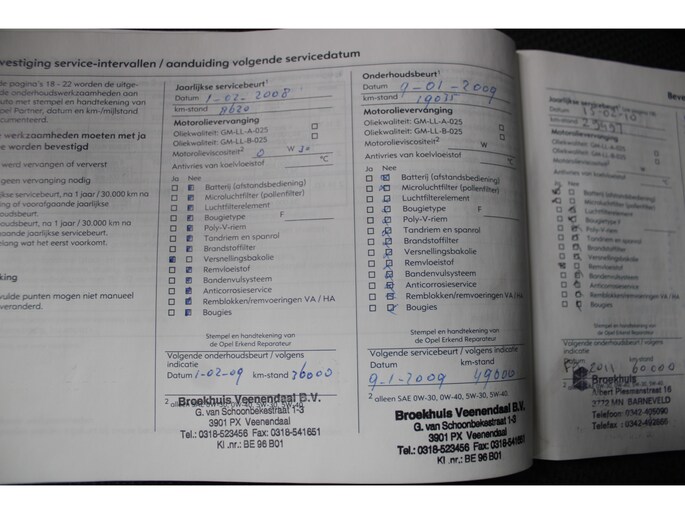 vestiging service-intervallen / aanduiding volgende servicedatum
de pagina's 18 - 22 worden de uitge-
de onderhoudswerkzaamheden aan
uto met stempel en handtekening van
pel Partner, datum en km-/mijlstand
cumenteerd.
e werkzaamheden moeten met ja
e worden bevestigd
werd vervangen of ververst
geen vervanging nodig
lijkse servicebeurt, na 1 jaar / 30.000 km na
g of voorafgaande jaarlijkse
oudsbeurt.
oudsbeurt, na 1 jaar / 30.000 km na
gaande jaarlijkse servicebeurt.
elang wat het eerst voorkomt.
king
vulde punten mogen niet manueel
veranderd.
Jaarlijkse servicebeurt¹
Datum 1-02-2008
km-stand 8620
Motorolievervanging
Oliekwaliteit: GM-LL-A-025
Oliekwaliteit: GM-LL-B-025
Motorolieviscositeit² 0 W 30
Antivries van koelvloeistof °C
Ja Nee
Batterij (afstandsbediening)
Microluchtfilter (pollenfilter)
Luchtfilterelement
Bougietype F
Poly-V-riem
Tandriem en spanrol
Brandstoffilter
Versnellingsbakolie
Remvloeistof
Bandenvulsysteem
Anticorrosieservice
Remblokken/remvoeringen VA / HA
Bougies
Stempel en handtekening van
de Opel Erkend Reparateur
Volgende onderhoudsbeurt / volgens
indicatie
Datum 1-02-09 km-stand 36000
² alleen SAE 0W-30, 0W-40, 5W-30, 5W-40
Broekhuis Veenendaal B.V.
G. van Schoonbekestraat 1-3
3901 PX Veenendaal
Tel.: 0318-523456 Fax: 0318-541651
Kl .nr.: BE 96 B01
Onderhoudsbeurt¹
Datum 9-01-2009
km-stand 19035
Motorolievervanging
Oliekwaliteit: GM-LL-A-025
Oliekwaliteit: GM-LL-B-025
Motorolieviscositeit² W
Antivries van koelvloeistof °C
Ja Nee
Batterij (afstandsbediening)
Microluchtfilter (pollenfilter)
Luchtfilterelement
Bougietype F
Poly-V-riem
Tandriem en spanrol
Brandstoffilter
Versnellingsbakolie
Remvloeistof
Bandenvulsysteem
Anticorrosieservice
Remblokken/remvoeringen VA / HA
Bougies
Stempel en handtekening van
de Opel Erkend Reparateur
Volgende servicebeurt / volgens indicatie
Datum km-stand
9-1-2009 49000
² alleen SAE 0W-30, 0W-40, 5W-30, 5W-40.
Broekhuis Veenendaal B.V.
G. van Schoonbekestraat 1-3
3901 PX Veenendaal
Tel.: 0318-523456 Fax: 0318-541651
Kl .nr.: BE 96 B01
Beve
Jaarlijkse servicebeurt¹
Datum
km-stand
Motorolievervanging
Oliekwaliteit: GM-LL-A-025
Oliekwaliteit: GM-LL-B-025
Motorolieviscositeit²
Antivries van koelvloeistof
Ja Nee
Batterij (afstandsbediening)
Microluchtfilter (pollenfilter)
Luchtfilterelement
Bougietype F
Poly-V-riem
Tandriem en spanrol
Brandstoffilter
Versnellingsbakolie
Remvloeistof
Bandenvulsysteem
Anticorrosieservice
Remblokken/remvoeringen VA / HA
Bougies
Stempel en handtekening van
de Opel Erkend Reparateur
Volgende onderhoudsbeurt / volgens
indicatie
2011 km-stand 60000
Broekhuis
Albert Plesmanstraat 16
3772 MN BARNEVELD
Telefoon: 0342-405090
Telefax: 0342-492666